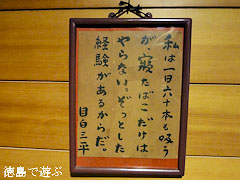 私は一日六十本も吸う
が、寝たばこだけは
やらない。ぞっとした
経験があるからだ。
目白三平
徳島で遊ぶ